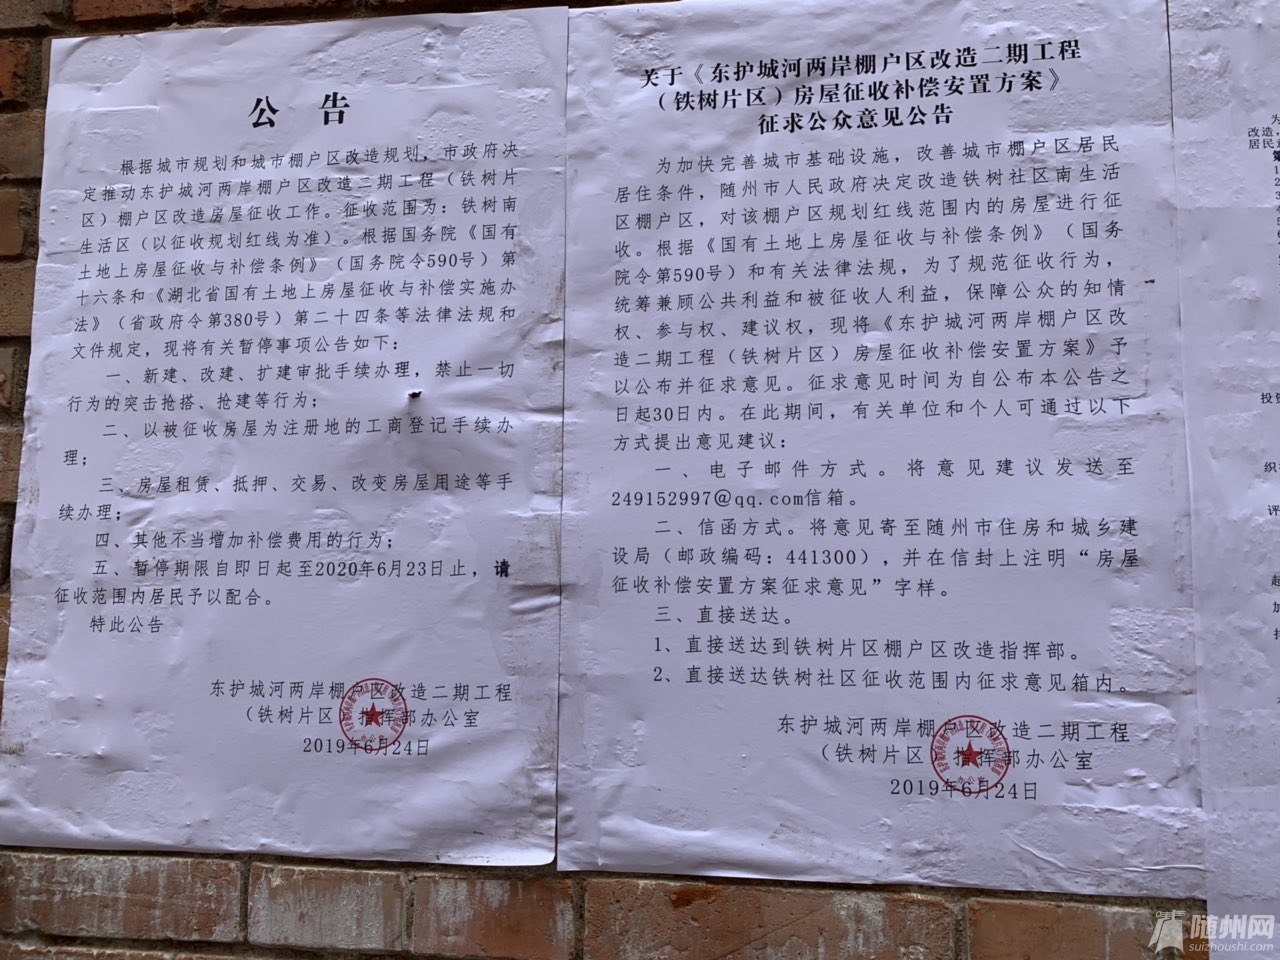 公 告
根据城市规划和城市棚户区改造规划，市政府决
定推动东护城河两岸棚户区改造二期工程（铁树片
区）棚户区改造房屋征收工作。征收范围为：铁树南
生活区（以征收规划红线为准）。根据国务院《国有
土地上房屋征收与补偿条例》（国务院令590号）第
十六条和《湖北省国有土地上房屋征收与补偿实施办
法》（省政府令第380号）第二十四条等法律法规和
文件规定，现将有关暂停事项公告如下：
一、新建、改建、扩建审批手续办理，禁止一切
行为的突击抢搭、抢建等行为；
二、以被征收房屋为注册地的工商登记手续办
理；
三、房屋租赁、抵押、交易、改变房屋用途等手
续办理；
四、其他不当增加补偿费用的行为；
五、暂停期限自即日起至2020年6月23日止，请
征收范围内居民予以配合。
特此公告
东护城河两岸棚户区改造二期工程
（铁树片区）指挥部办公室
2019年6月24日
关于《东护城河两岸棚户区改造二期工程
（铁树片区）房屋征收补偿安置方案》
征求公众意见公告
为加快完善城市基础设施，改善城市棚户区居民
居住条件，随州市人民政府决定改造铁树社区南生活
区棚户区，对该棚户区规划红线范围内的房屋进行征
收。根据《国有土地上房屋征收与补偿条例》（国务
院令第590号）和有关法律法规，为了规范征收行为，
统筹兼顾公共利益和被征收人利益，保障公众的知情
权、参与权、建议权，现将《东护城河两岸棚户区改
造二期工程（铁树片区）房屋征收补偿安置方案》予
以公布并征求意见。征求意见时间为自公布本公告之
日起30日内。在此期间，有关单位和个人可通过以下
方式提出意见建议：
一、电子邮件方式。将意见建议发送至
249152997@qq.com信箱。
二、信函方式。将意见寄至随州市住房和城乡建
设局（邮政编码：441300），并在信封上注明“房屋
征收补偿安置方案征求意见”字样。
三、直接送达。
1、直接送达到铁树片区棚户区改造指挥部。
2、直接送达铁树社区征收范围内征求意见箱内。
东护城河两岸棚户区改造二期工程
（铁树片区）指挥部办公室
2019年6月24日
为
改造
居民
第
1
2
3
投资
织
评
起
加
随州网
suizhoushi.com